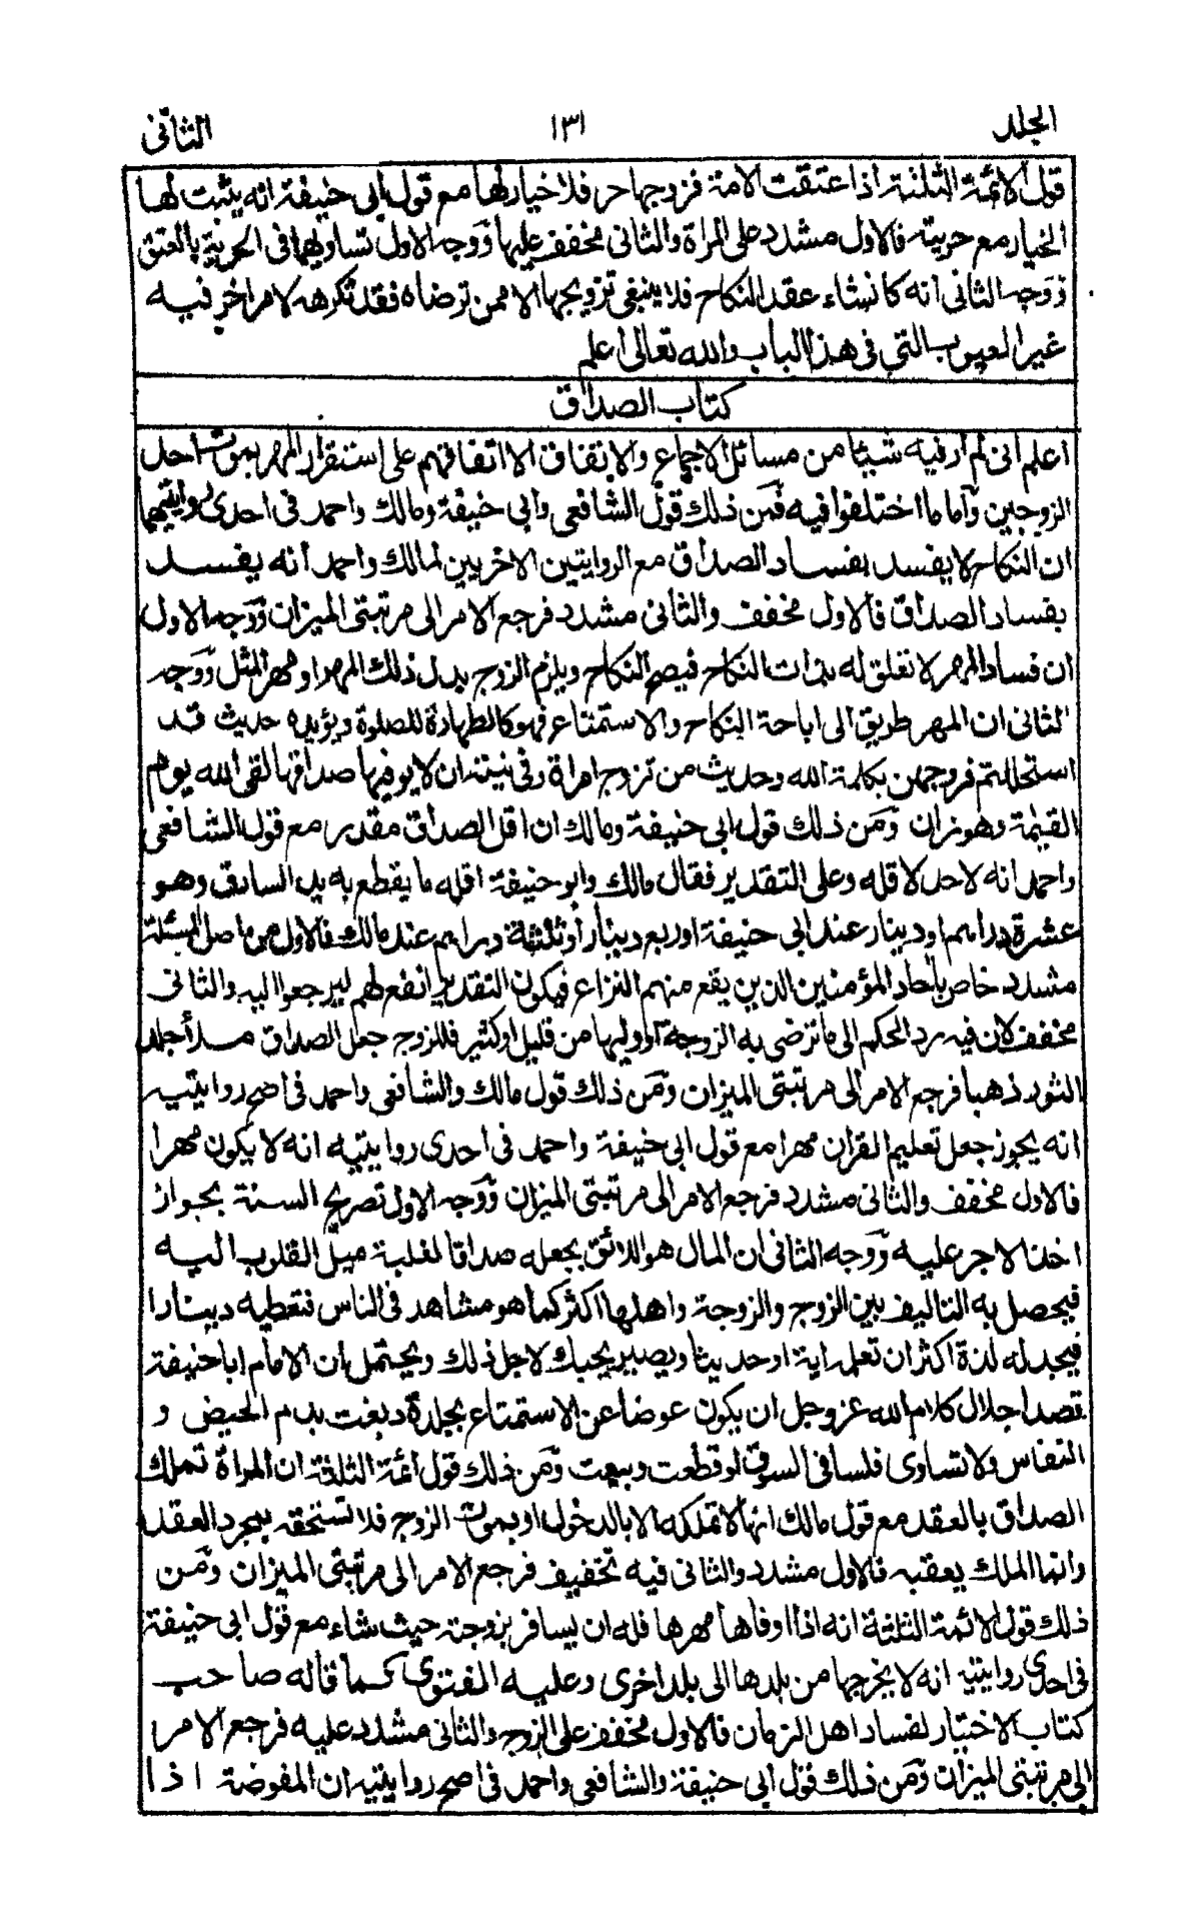 الجلد ١٣١ الثانى
قول الائمة الثلثة اذا عتقت الامة فزوجها حر فلا خيار لها مع قول ابى حنيفة انه يثبت لها
الخيار مع حريته فالاول مشدد على المراة والثانى مخفف عليها ووجه الاول تساويهما فى الحرية بالعتق
ووجه الثانى انه كانشاء عقد النكاح فلا ينبغى تزويجها الا ممن ترضاه فقد تكرهه لامر اخر فيه
غير العيوب التى فى هذا الباب والله تعالى اعلم
كتاب الصداق
اعلم انى لم ار فيه شيئا من مسائل الاجماع والاتفاق الا اتفاقهم على استقرار المهر بموت احد
الزوجين واما ما اختلفوا فيه فمن ذلك قول الشافعى وابى حنيفة ومالك واحمد فى احدى روايتيهما
ان النكاح لا يفسد بفساد الصداق مع الروايتين الاخريين لمالك واحمد انه يفسد
بفساد الصداق فالاول مخفف والثانى مشدد فرجع الامر الى مرتبتى الميزان ووجه الاول
ان فساد المهر لا تعلق له بذات النكاح فيصح النكاح ويلزم الزوج بدل ذلك المهر او مهر المثل ووجه
الثانى ان المهر طريق الى اباحة النكاح والاستمتاع فهو كالطهارة للصلوة ويؤيده حديث قد
استحللتم فروجهن بكلمة الله وحديث من تزوج امراة وفى نيته ان لا يوفيها صداقها لقى الله يوم
القيمة وهو زان ومن ذلك قول ابى حنيفة ومالك ان اقل الصداق مقدر مع قول الشافعى
واحمد انه لا حد لاقله وعلى التقدير فقال مالك وابو حنيفة اقله ما يقطع به يد السارق وهو
عشرة دراهم او دينار عند ابى حنيفة او ربع دينار او ثلثة دراهم عند مالك فالاول من اصل المسئلة
مشدد خاص باحاد المؤمنين الذين يقع منهم النزاع فيكون التقدير انفع لهم ليرجعوا اليه والثانى
مخفف لان فيه رد الحكم الى ما ترضى به الزوجة او وليها من قليل او كثير فللزوج جعل الصداق ملأ جلد
الثور ذهبا فرجع الامر الى مرتبتى الميزان ومن ذلك قول مالك والشافعى واحمد فى اصح روايتيه
انه يجوز جعل تعليم القران مهرا مع قول ابى حنيفة واحمد فى احدى روايتيه انه لا يكون مهرا
فالاول مخفف والثانى مشدد فرجع الامر الى مرتبتى الميزان ووجه الاول تصريح السنة بجواز
اخذ الاجر عليه ووجه الثانى ان المال هو اللائق بجعله صداقا لغلبة ميل القلوب اليه
فيحصل به التاليف بين الزوج والزوجة واهلها اكثر كما هو مشاهد فى الناس فتعطيه دينارا
فيجد له لذة اكثر ان تعلمه اية او حديثا ويصير يحبك لاجل ذلك ويحتمل ان الامام ابا حنيفة
قصد اجلال كلام الله عزوجل ان يكون عوضا عن الاستمتاع بجلدة دبغت بدم الحيض و
النفاس ولا تساوى فلسا فى السوق لو قطعت وبيعت ومن ذلك قول ائمة الثلاثة ان المراة تملك
الصداق بالعقد مع قول مالك انها لا تملكه الا بالدخول او بموت الزوج فلا تستحقه بمجرد العقد
وانما الملك يعقبه فالاول مشدد والثانى فيه تخفيف فرجع الامر الى مرتبتى الميزان ومن
ذلك قول الائمة الثلثة انه اذا اوفاها مهرها فله ان يسافر بزوجته حيث شاء مع قول ابى حنيفة
فى احدى روايتيه انه لا يخرجها من بلدها الى بلد اخرى وعليه الفتوى كما قاله صاحب
كتاب الاختيار لفساد اهل الزمان فالاول مخفف على الزوج والثانى مشدد عليه فرجع الامر
الى مرتبتى الميزان ومن ذلك قول ابى حنيفة والشافعى واحمد فى اصح روايتيه ان المفوضة اذا